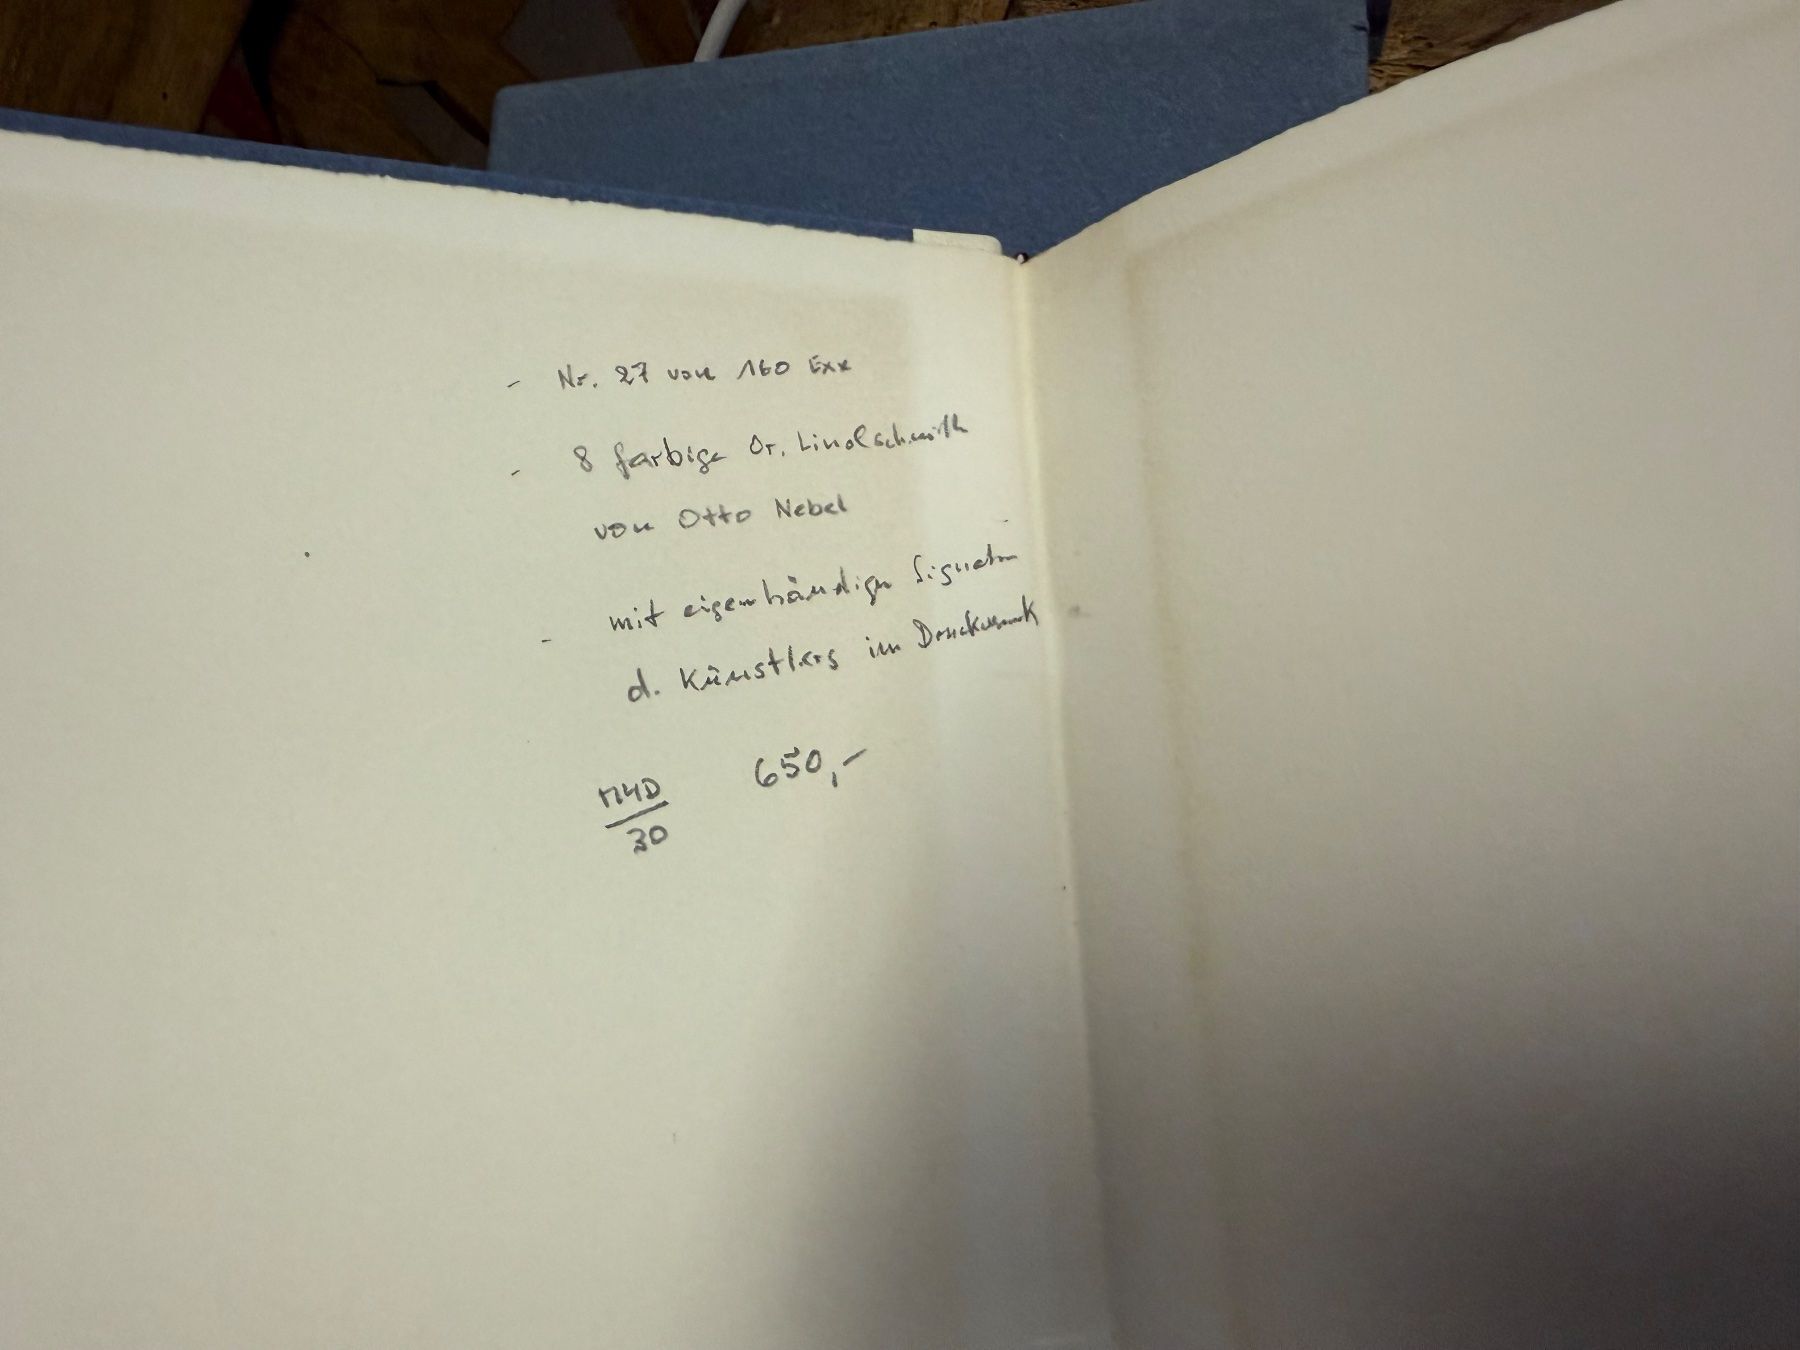 - Nr. 27 von 160 Exx
- 8 farbige Or. Linolschnitte
von Otto Nebel
- mit eigenhändiger Signatur
d. Künstlers im Druckvermerk
650,-
30